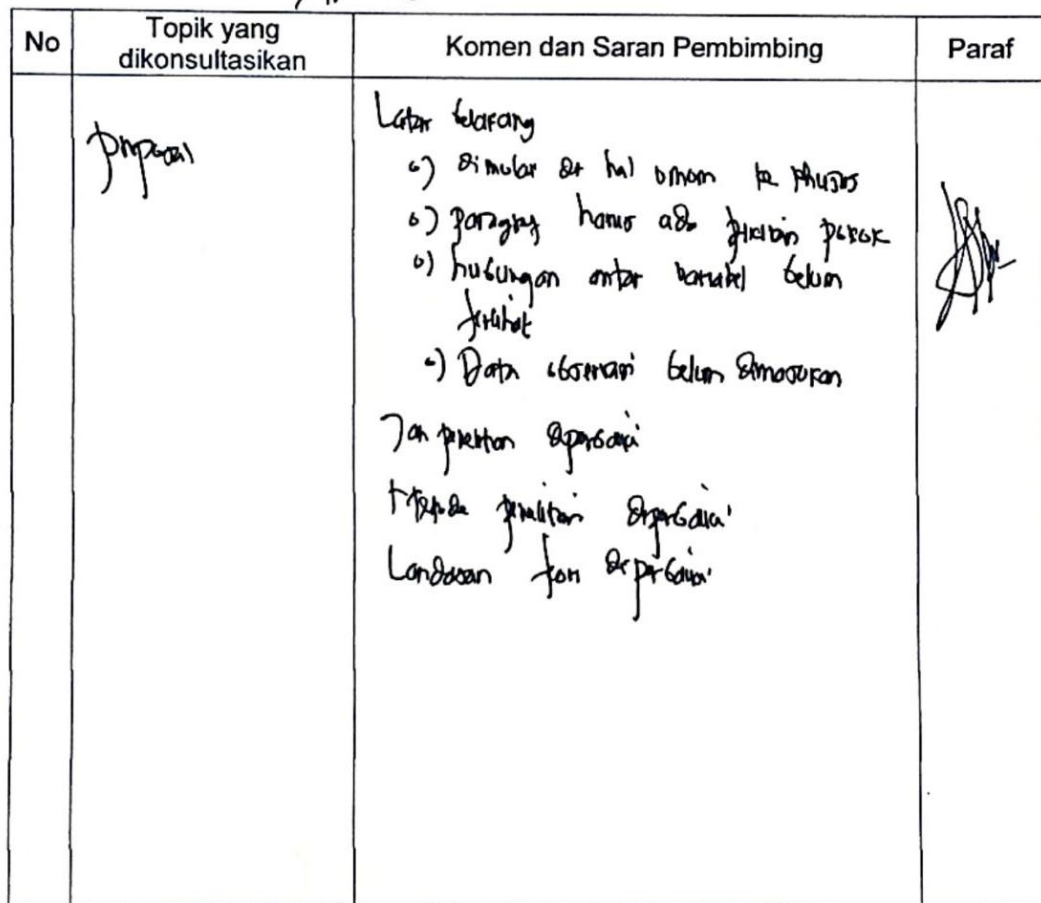 No
Topik yang
dikonsultasikan
Komen dan Saran Pembimbing
Paraf
proposal
Latar belakang
o) dimulai dr hal umum ke khusus
o) paragraf harus ada pikiran pokok
o) hubungan antar variabel belum
terlihat
o) Data observasi belum dimasukan
penelitian diperbaiki
penelitian diperbaiki
Landasan teori diperbaiki